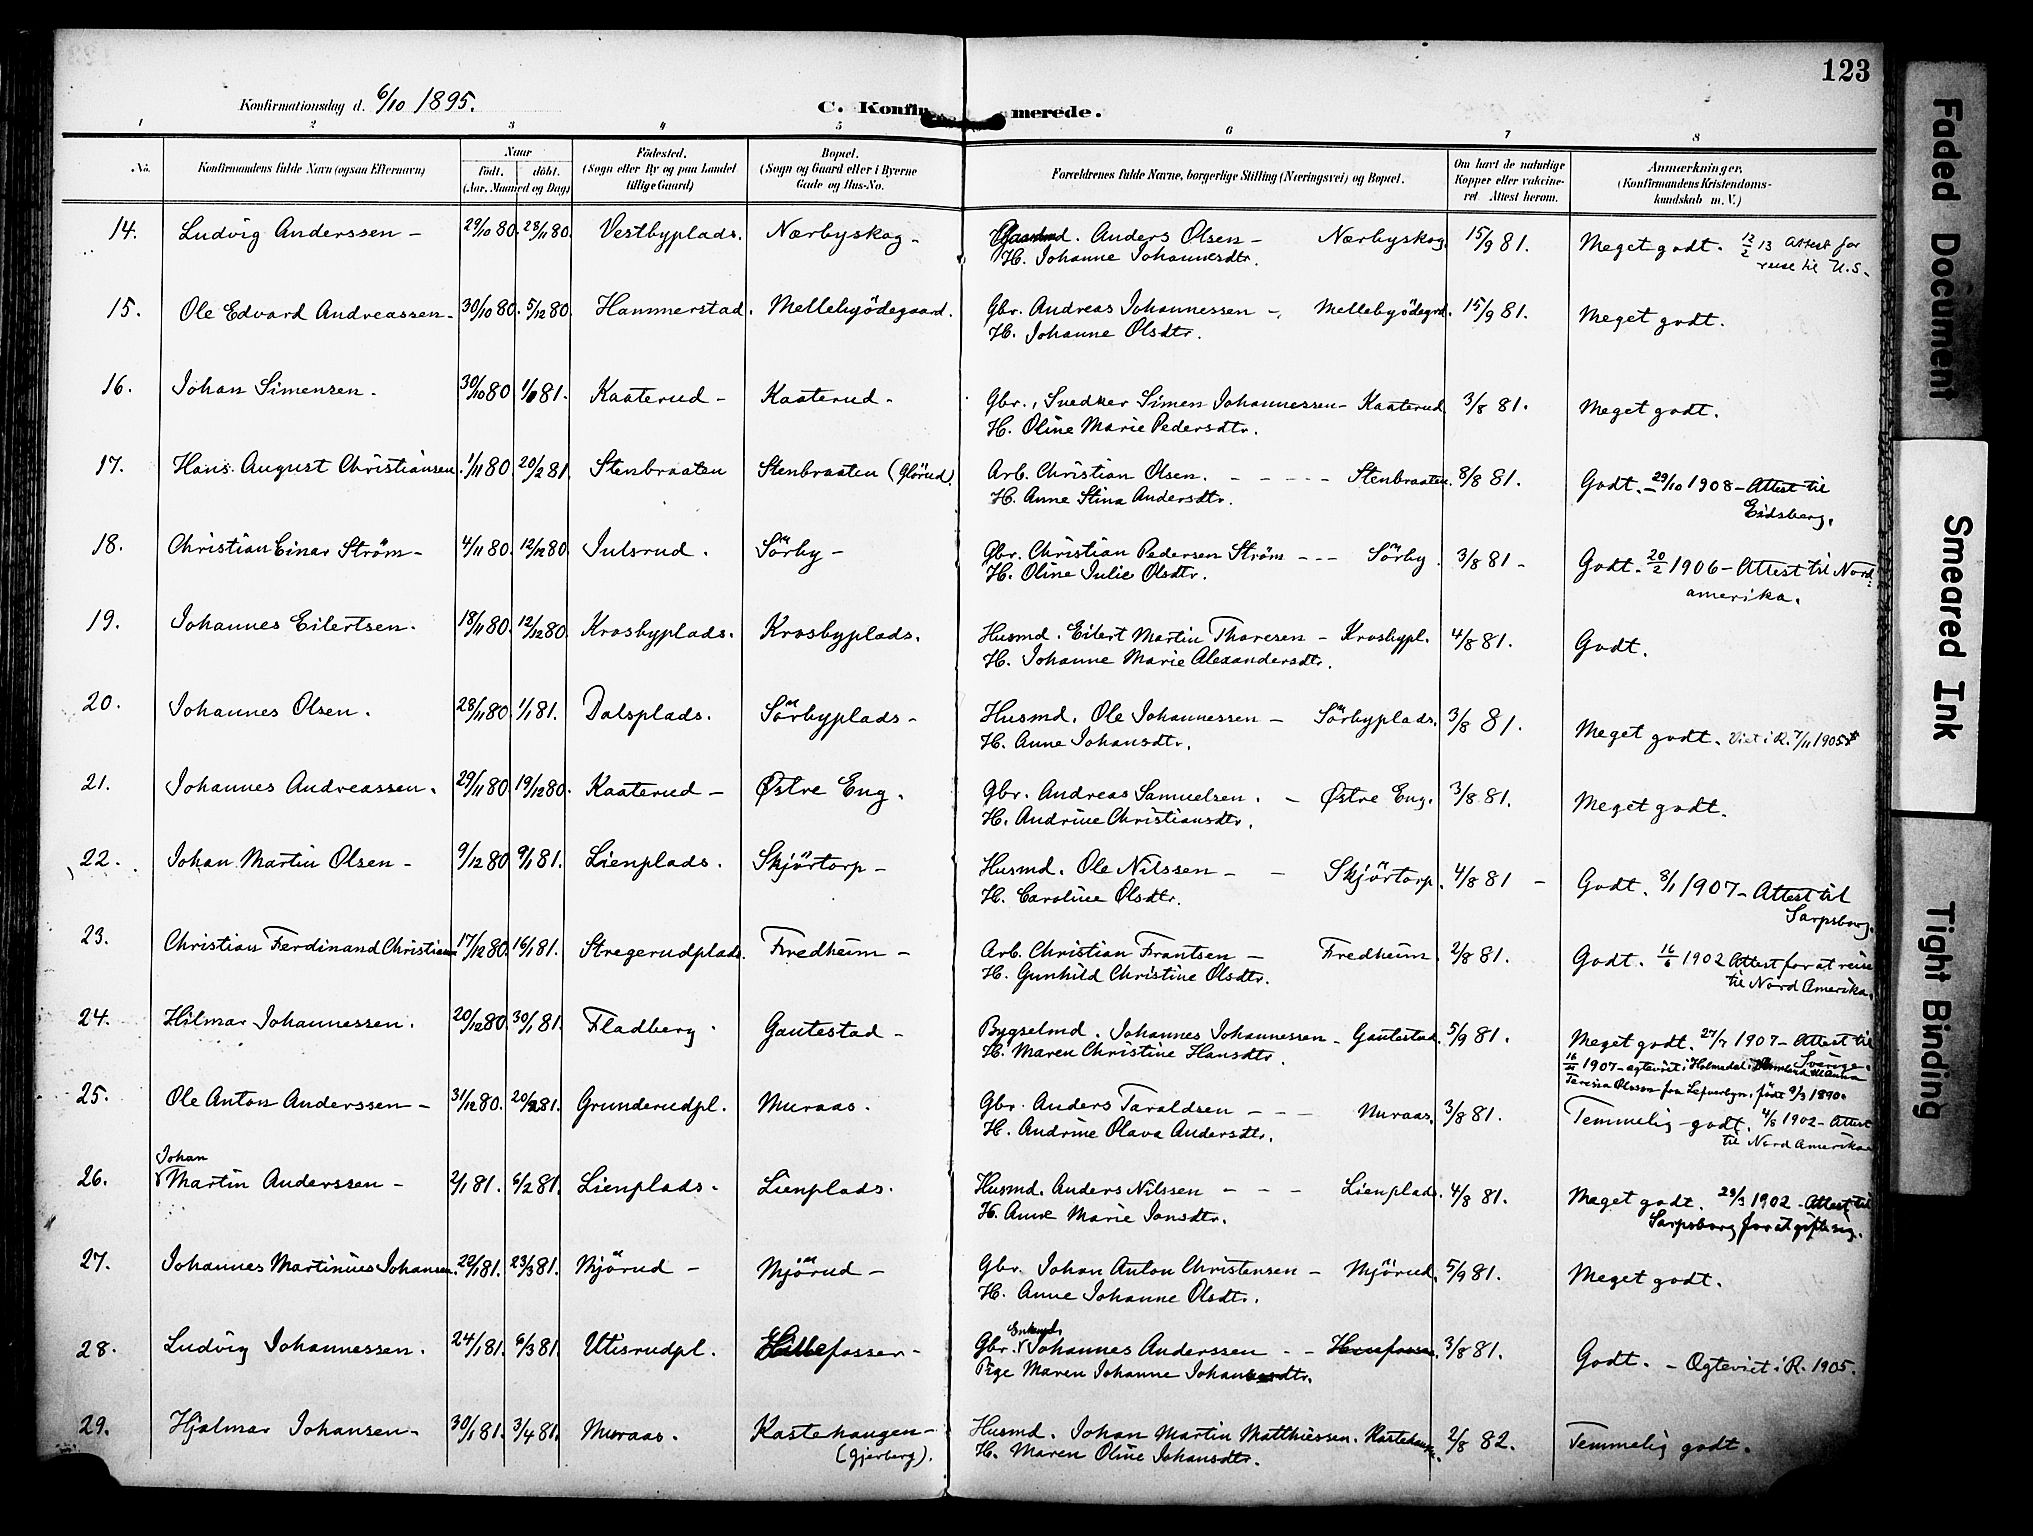 123
Konfirmationsdag d. 6/10 1895.
C. Konfir merede.
1 2 3 4 5 6 7 8
No. Konfirmandens fulde Navn (ogsaa Efternavn) Naar Födt. döbt. (Aar, Maaned og Dag) Födested. (Sogn eller By og paa Landet tillige Gaard) Bopæl. (Sogn og Gaard eller i Byerne Gade og Hus-No. Forældrenes fulde Navne, borgerlige Stilling (Næringsvei) og Bopæl. Om havt de naturlige Kopper eller vakcineret Attest herom. Anmærkninger. (Konfirmandens Kristendomskundskab m. V.)
14. Ludvig Anderssen - 29/10 80. 28/11 80. Vestbyplads. Nærbyskog - Gaardmd. Anders Olsen - Nærbyskog. 15/9 81. Meget godt. 12/2 13 Attest for
H. Johanne Johannesdtr. reise til U.S.
15. Ole Edvard Andreassen - 30/10 80. 5/12 80. Hammerstad. Mellebyödegaard. Gbr. Andreas Johannessen - Mellebyödegrd. 15/9 81. Meget godt.
H. Johanne Olsdtr.
16. Johan Simensen. 30/10 80 1/6 81. Kaaterud - Kaaterud - Gbr., Snedker Simen Johannessen - Kaaterud. 3/8 81. Meget godt.
H. Oline Marie Pedersdtr.
17. Hans August Christiansen. 1/11 80 20/2 81 Stenbraaten Stenbraaten (Glörud). Arb. Christian Olsen. - - - - - Stenbraaten. 8/8 81. Godt. - 29/10 1908 - Attest til
H. Anne Stina Andersdtr. Eidsberg.
18. Christian Einar Ström - 4/11 80. 12/12 80. Julsrud. Sörby - Gbr. Christian Pedersen Ström - - - Sörby. 3/8 81 - Godt. 20/2 1906 - Attest til Nord-
H. Oline Julie Olsdtr. amerika.
19. Johannes Eilertsen. 18/11 80. 12/12 80. Krosbyplads. Krosbyplads. Husmd. Eilert Martin Thoresen - Krosbypl. 4/8 81. Godt.
H. Johanne Marie Alexandersdtr.
20. Johannes Olsen. 28/11 80. 1/1 81. Dalsplads. Sörbyplads - Husmd. Ole Johannessen - Sörbyplads. 3/8 81. Meget godt. Viet i R. 7/11 1905
H. Anne Johansdtr.
21. Johannes Andreassen. 29/11 80. 19/12 80. Kaaterud - Østre Eng. Gbr. Andreas Samuelsen. - Østre Eng. 3/8 81. Meget godt.
H. Andrine Christiansdtr.
22. Johan Martin Olsen - 9/12 80 9/1 81. Lienplads. Skjörtorp - Husmd. Ole Nilssen - - Skjörtorp. 4/8 81 - Godt. 8/1 1907 - Attest til
H. Caroline Olsdtr. Sarpsborg.
23. Christian Ferdinand Christians. 17/12 80. 16/1 81. Stregerudplads. Fredheim - Arb. Christian Frantsen - Fredheim. 2/8 81. Godt. 16/6 1902 Attest for at reise
H. Gunhild Christine Olsdtr. til Nord Amerika.
24. Hilmar Johannessen. 20/12 80. 30/1 81. Fladberg. Gautestad - Bygselmd. Johannes Johannessen - Gautestad. 5/9 81. Meget godt. 27/7 1907 - Attest til
H. Maren Christine Hansdtr. Sverige.
16/11 1907 - ægteviet i Holmedal, Anna
Teresia Olsson fra Lefverbyn, född 9/3 1890.
25. Ole Anton Anderssen - 31/12 80. 20/2 81. Grunderudpl. Muraas. Gbr. Anders Taraldsen - - - Muraas. 3/8 81. Temmelig godt. 4/8 1902 - Attest
H. Andrine Olava Andersdtr. til Nord Amerika
Johan
26. Martin Anderssen - 2/1 81. 6/2 81. Lienplads. Lienplads. Husmd. Anders Nilssen - - - Lienplads. 4/8 81. Meget godt. 29/3 1902 - Attest til
H. Anne Marie Jonsdtr. Sarpsborg for at gifte sig.
27. Johannes Martinius Johansen. 22/1 81. 23/3 81. Mjörud - Mjörud - Gbr. Johan Anton Christensen - Mjörud. 5/9 81. Meget godt.
H. Anne Johanne Olsdtr.
Enkemd.
28. Ludvig Johannessen. 24/1 81. 6/3 81. Utisrudpl. Hillefosser - Gbr. Johannes Anderssen - - 3/8 81. Godt. - Ægteviet i R. 1905.
Pige Maren Johanne Johansdtr.
29. Hjalmar Johansen - 30/1 81. 3/4 81. Muraas. Kastehaugen - Husmd. Johan Martin Matthiessen. Kastehaugen. 2/8 82. Temmelig godt.
(Gjerberg). H. Maren Oline Johansdtr.
Faded Document
Smeared Ink
Tight Binding